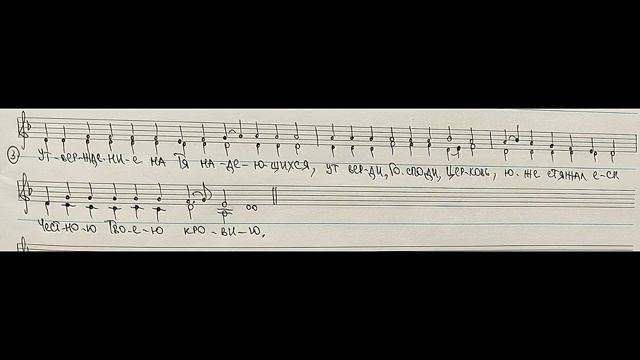 ③ УТ-ВЕР-ЖДЕ-НИ-Е НА ТЯ НА-ДЕ-Ю-ЩИХСЯ, УТ ВЕР-ДИ, ГО-СПОДИ, ЦЕР-КОВЬ, Ю-ЖЕ СТЯЖАЛ Е-СИ
ЧЕСТ-НО-Ю ТВО-Е-Ю КРО-ВИ-Ю.